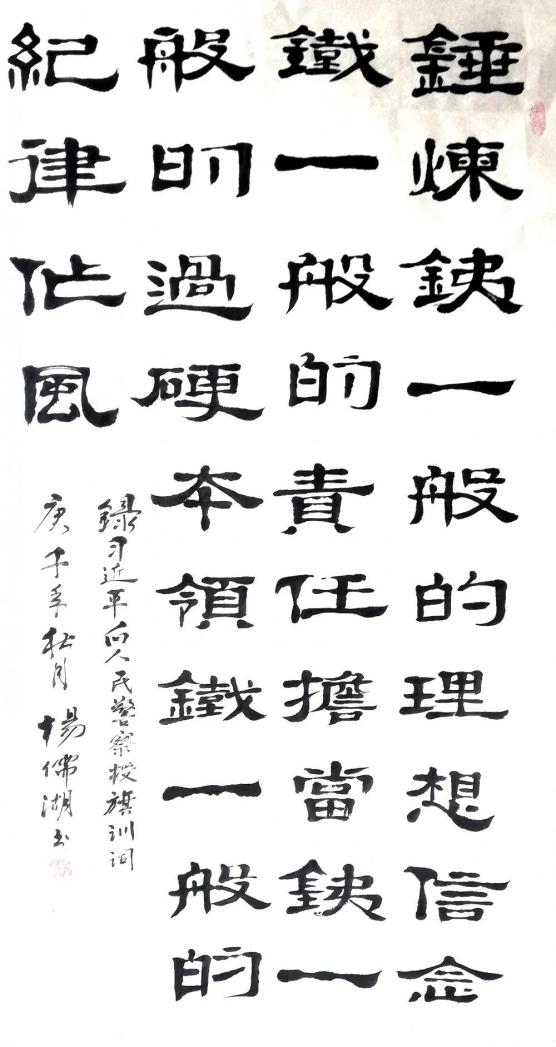 錘煉銕一般的理想信念
鐵一般的責任擔當銕一
般的過硬本領鐵一般的
紀律作風
錄习近平向人民警察授旗训词
庚子年秋月 楊儒湖书